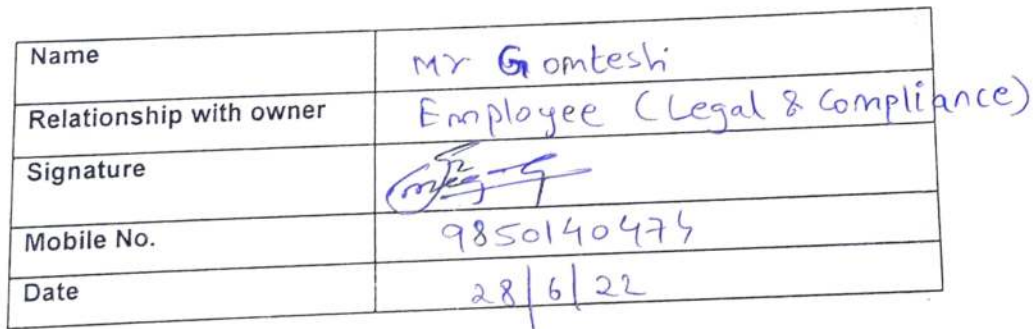 Name Mr Gomtesh
Relationship with owner Employee (Legal & Compliance)
Signature
Mobile No. 9850140474
Date 28/6/22